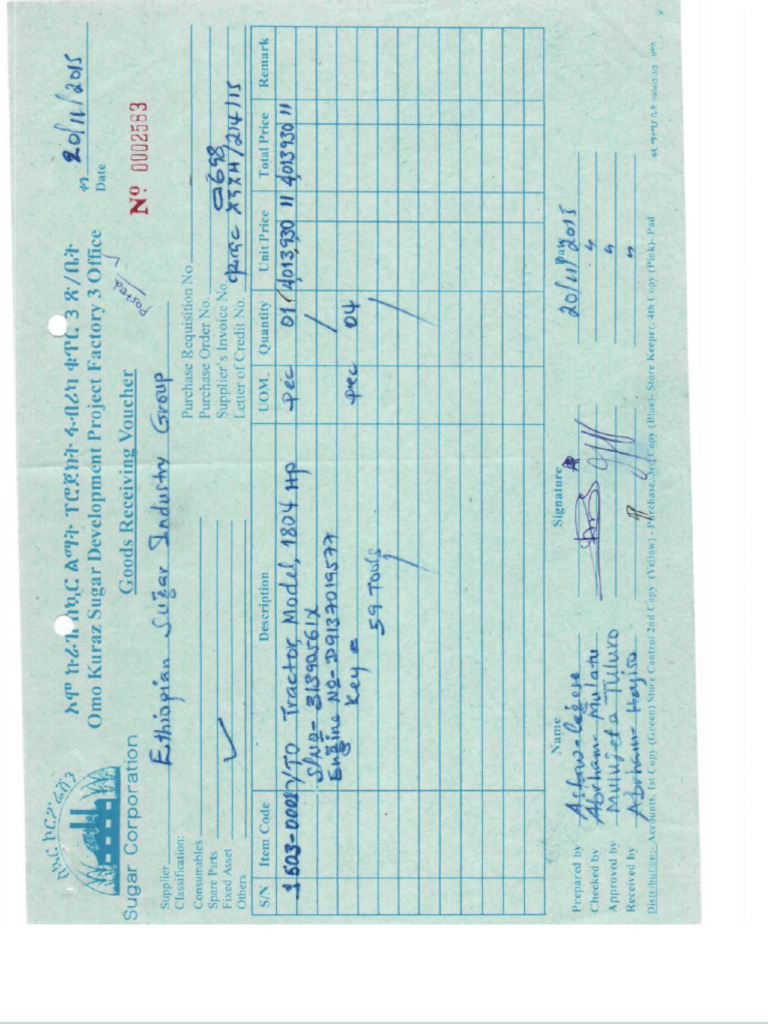 ስኳር ኮርፖሬሽን
Sugar Corporation
ኦሞ ኩራዝ ስኳር ልማት ፕሮጀክት ፋብሪካ ቁጥር 3 ጽ/ቤት
Omo Kuraz Sugar Development Project Factory 3 Office
ቀን 20/11/2015
Date
Goods Receiving Voucher
Posted
Nº 0002583
Supplier Ethiopian Sugar Industry Group
Classification:
Consumables
Spare Parts
Fixed Asset ✓
Others
Purchase Requisition No
Purchase Order No.
Supplier's Invoice No.
Letter of Credit No.
S/N Item Code Description UOM. Quantity Unit Price Total Price Remark
1 603-0001 YTO Tractor Model, 1804 HP pec 01 4,013,930 11 4,013,930 11
S/No- 31390561X
Engine No- D9137019577
Key = pec 04
59 Tools
Name Signature Date
Prepared by 20/11/2015
Checked by Abraham Mulatu "
Approved by Mulujeta Tuluko "
Received by Abraham Hajiso "
Distribution:- Accounts, 1st Copy (Green) Store Control 2nd Copy (Yellow) - Purchase, 3rd Copy (Blue)- Store Keeper, 4th Copy (Pink)- Pad